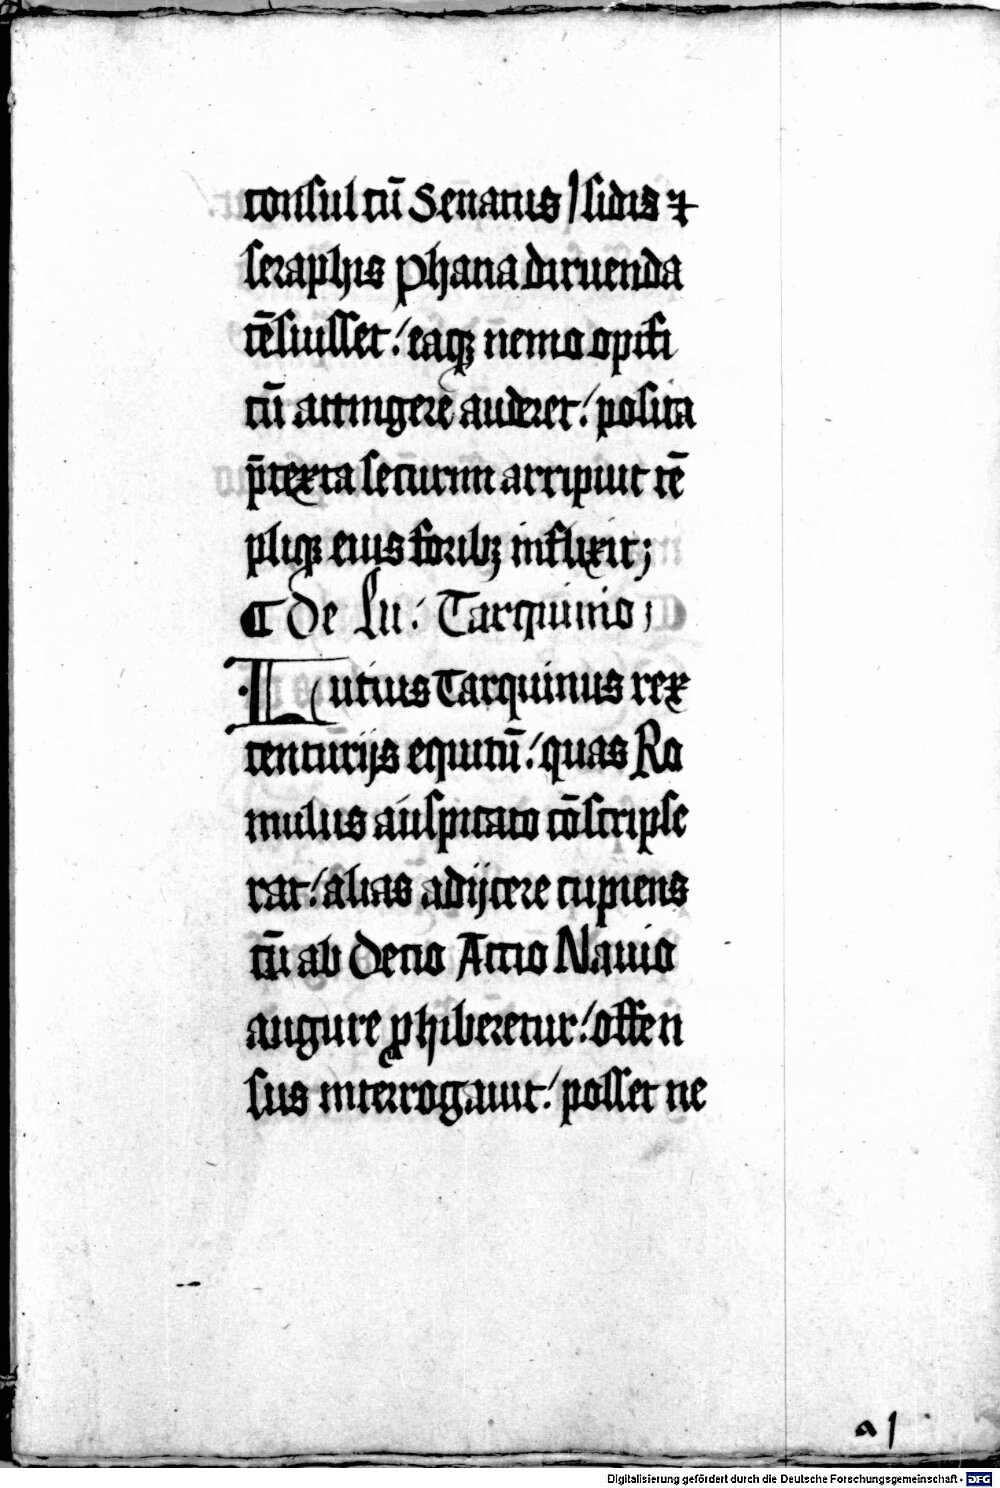 consul cū Senatus / sidis ⁊
seraphis phana diruenda
cēsuisset / eaqꝫ nemo opifi
cū attingere auderet / posita
p̄texta securim arripiuit tē
pliqꝫ eius foribꝫ inflixit;
¶ De Lu. Tarquinio;
Lucius Tarquinus rex
centurijs equitū / quas Ro
mulus auspicato cōscripse
rat / alias adijcere cupiens
cū ab Decio Attio Nauio
augure ꝓhiberetur / offen
sus interrogauit / posset ne
a 1
Digitalisierung gefördert durch die Deutsche Forschungsgemeinschaft - DFG